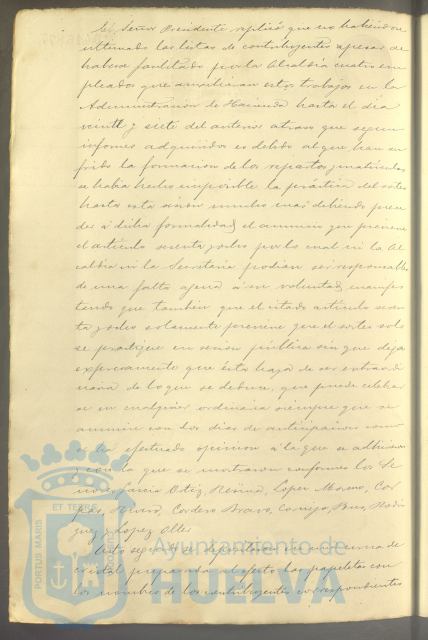 El Señor Presidente replicó que no habiéndose
ultimado las listas de contribuyentes apesar de
haberse facilitado por la Alcaldía cuatro em
pleados que auxiliaran estos trabajos en la
Administracion de Hacienda hasta el dia
veinte y siete del anterior atraso que segun
informes adquiridos es debido al que han su
frido la formacion de los repartos y matriculas
se habia hecho imposible la práctica del sorteo
hasta esta sesion mucho mas debiendo prece
der á dicha formalidad el anuncio que previene
el articulo sesenta y ocho por lo cual ni la Al
caldia ni la Secretaria podian ser responsables
de una falta agena á su voluntad, manifes
tando que tambien que el citado articulo sesen
ta y ocho solamente previene que el sorteo solo
se practique en sesion pública sin que diga
expresamente que ésta haya de ser extraordi
naria de lo que se deduce, que puede celebrar
se en cualquier ordinaria siempre que se
anuncie con dos dias de anticipacion como
se ha efectuado opinion á la que se adhirieron
y con la que se mostraron conformes los Se
ñores Garcia Ortiz, Resina, Lopez Moreno, Cor
Rivero, Cordero Bravo, Cornejo, Rodri
guez y Lopez
Acto seguido se depositaron en una urna de
cristal preparada al efecto las papeletas con
los nombres de los contribuyentes correspondientes
PORTUS MARIS
ET TERRE
Ayuntamiento de
HUELVA